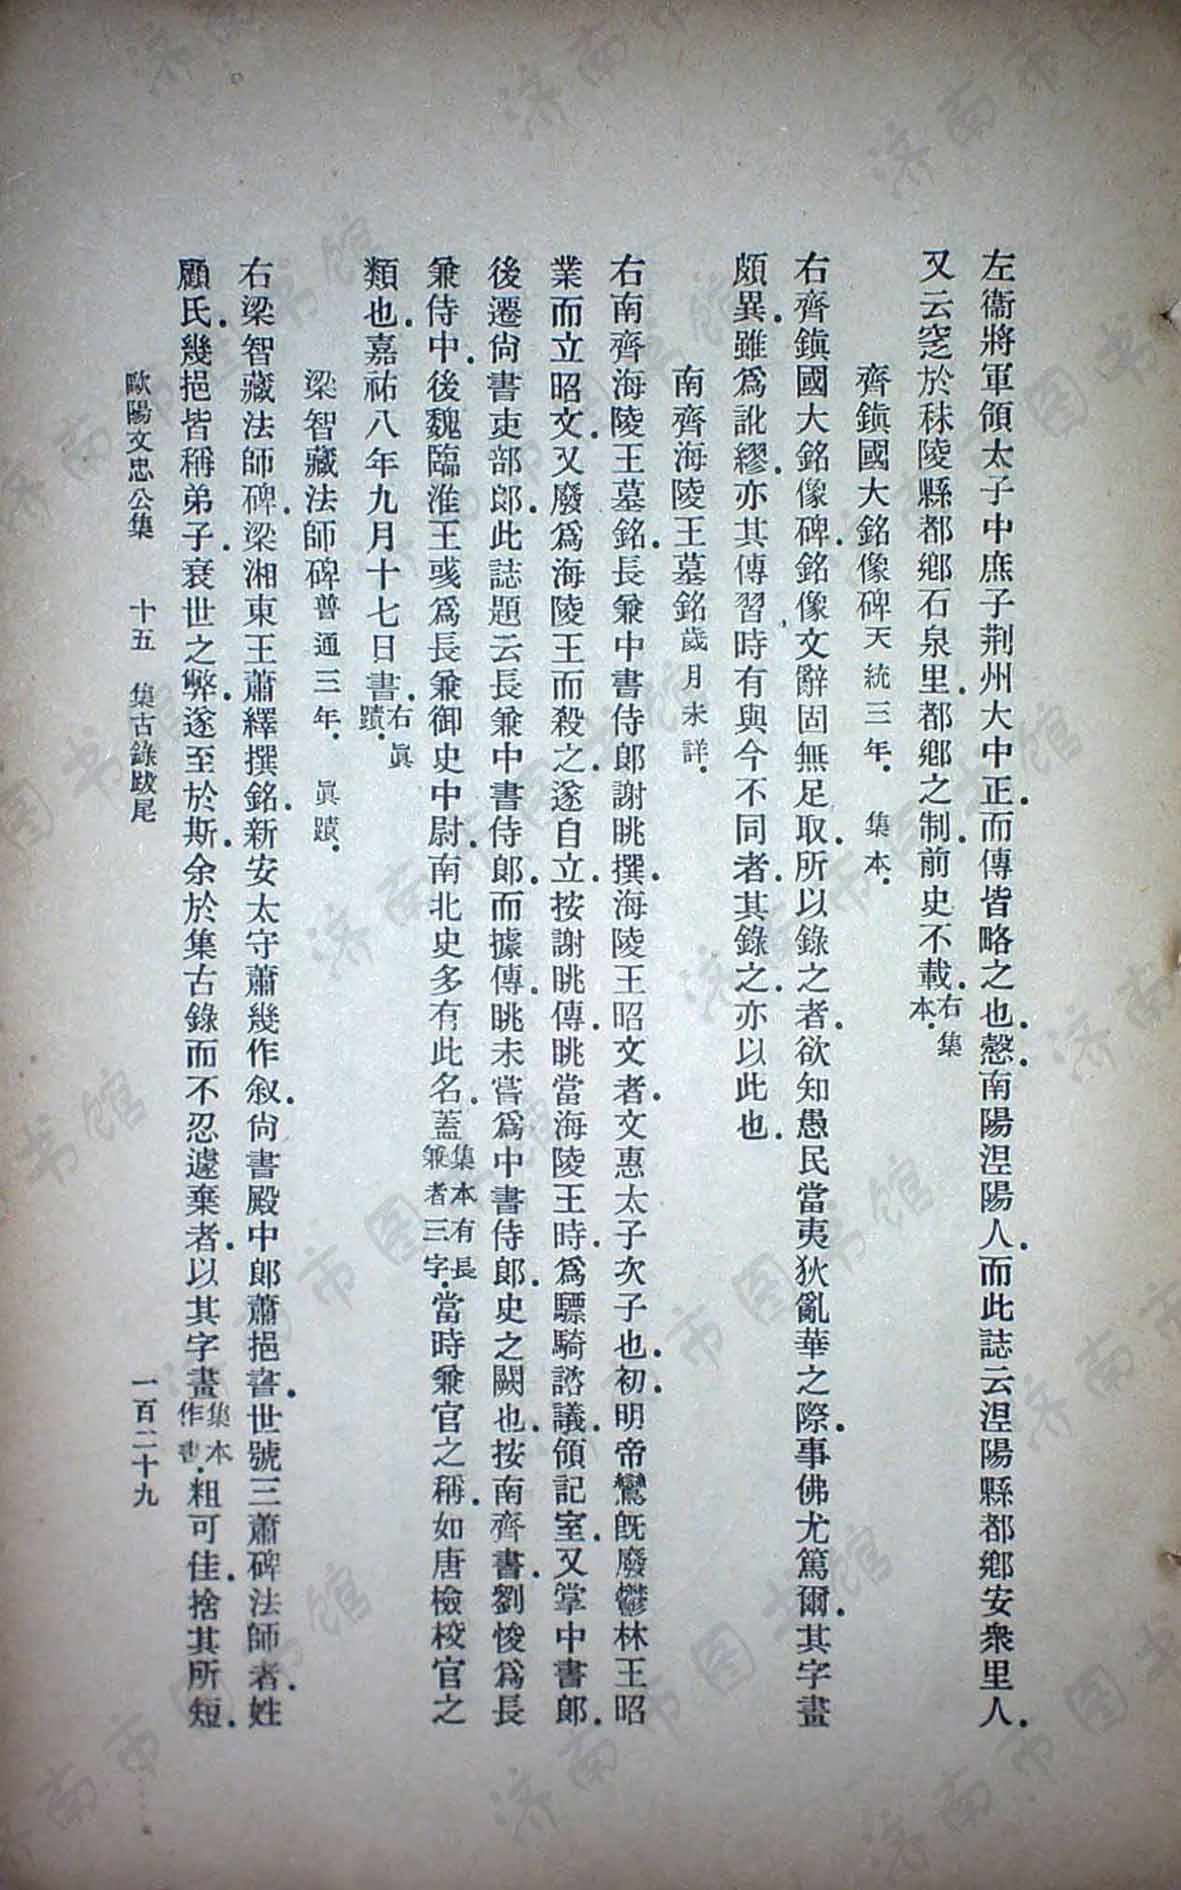 左衞將軍領太子中庶子荆州大中正．而傳皆略之也．愨南陽涅陽人．而此誌云涅陽縣都鄉安衆里人．
又云窆於秣陵縣都鄉石泉里．都鄉之制．前史不載．右集本．
齊鎭國大銘像碑天統三年．　集本．
右齊鎭國大銘像碑．銘像文辭固無足取．所以錄之者．欲知愚民當夷狄亂華之際．事佛尤篤爾．其字畫
頗異．雖爲訛繆．亦其傳習時有與今不同者．其錄之．亦以此也．
南齊海陵王墓銘歲月未詳．
右南齊海陵王墓銘．長兼中書侍郎謝眺撰．海陵王昭文者．文惠太子次子也．初．明帝鸞旣廢鬱林王昭
業而立昭文．又廢爲海陵王而殺之．遂自立．按謝眺傳．眺當海陵王時．爲驃騎諮議．領記室．又掌中書郎．
後遷尙書吏部郎．此誌題云長兼中書侍郎．而據傳．眺未嘗爲中書侍郎．史之闕也．按南齊書．劉悛爲長
兼侍中．後魏臨淮王彧爲長兼御史中尉．南北史多有此名．蓋集本有長兼者三字．當時兼官之稱．如唐檢校官之
類也．嘉祐八年九月十七日書．右眞蹟．
梁智藏法師碑普通三年．　眞蹟．
右梁智藏法師碑．梁湘東王蕭繹撰銘．新安太守蕭幾作叙．尙書殿中郎蕭挹書．世號三蕭碑法師者．姓
顧氏．幾挹皆稱弟子．衰世之弊．遂至於斯．余於集古錄而不忍遽棄者．以其字畫集本作書．粗可佳．捨其所短．
歐陽文忠公集　十五　集古錄跋尾　一百二十九
济南市图书馆